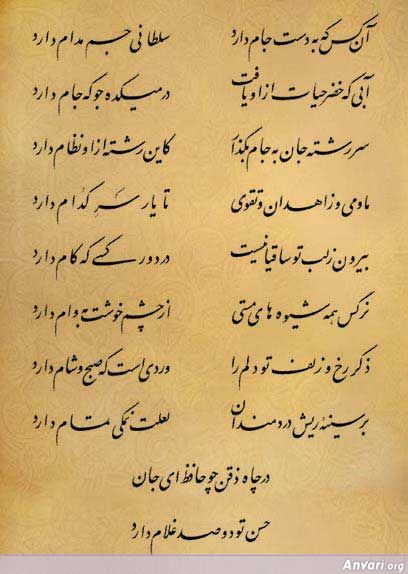 آن کس که به دست جام دارد سلطانی جم مدام دارد
آبی که خضر حیات از او یافت در میکده جو که جام دارد
سررشته جان به جام بگذار کاین رشته از او نظام دارد
ما و می و زاهدان و تقوی تا یار سر کدام دارد
بیرون ز لب تو ساقیا نیست در دور کسی که کام دارد
نرگس همه شیوه های مستی از چشم خوشت به وام دارد
ذکر رخ و زلف تو دلم را وردی است که صبح و شام دارد
بر سینهٔ ریش دردمندان لعلت نمکی تمام دارد
در چاه ذقن چو حافظ ای جان
حسن تو دو صد غلام دارد
Anvari.org